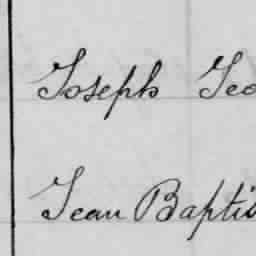 Joseph Geo
Jean Baptis